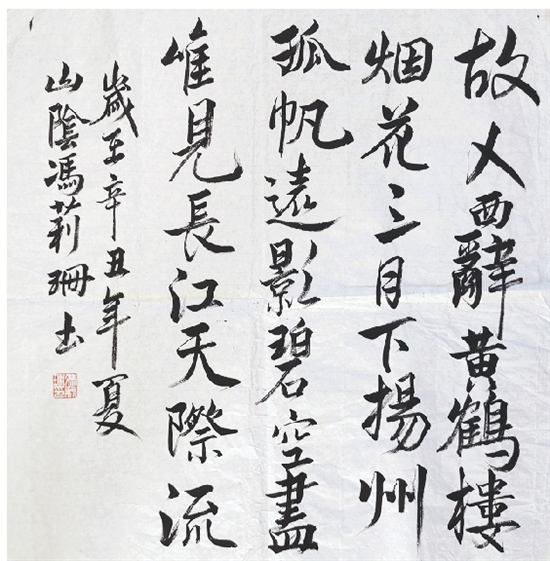 故人西辭黄鶴樓
烟花三月下揚州
孤帆遠影碧空盡
唯見長江天際流
歲在辛丑年夏
山陰馮莉珊书